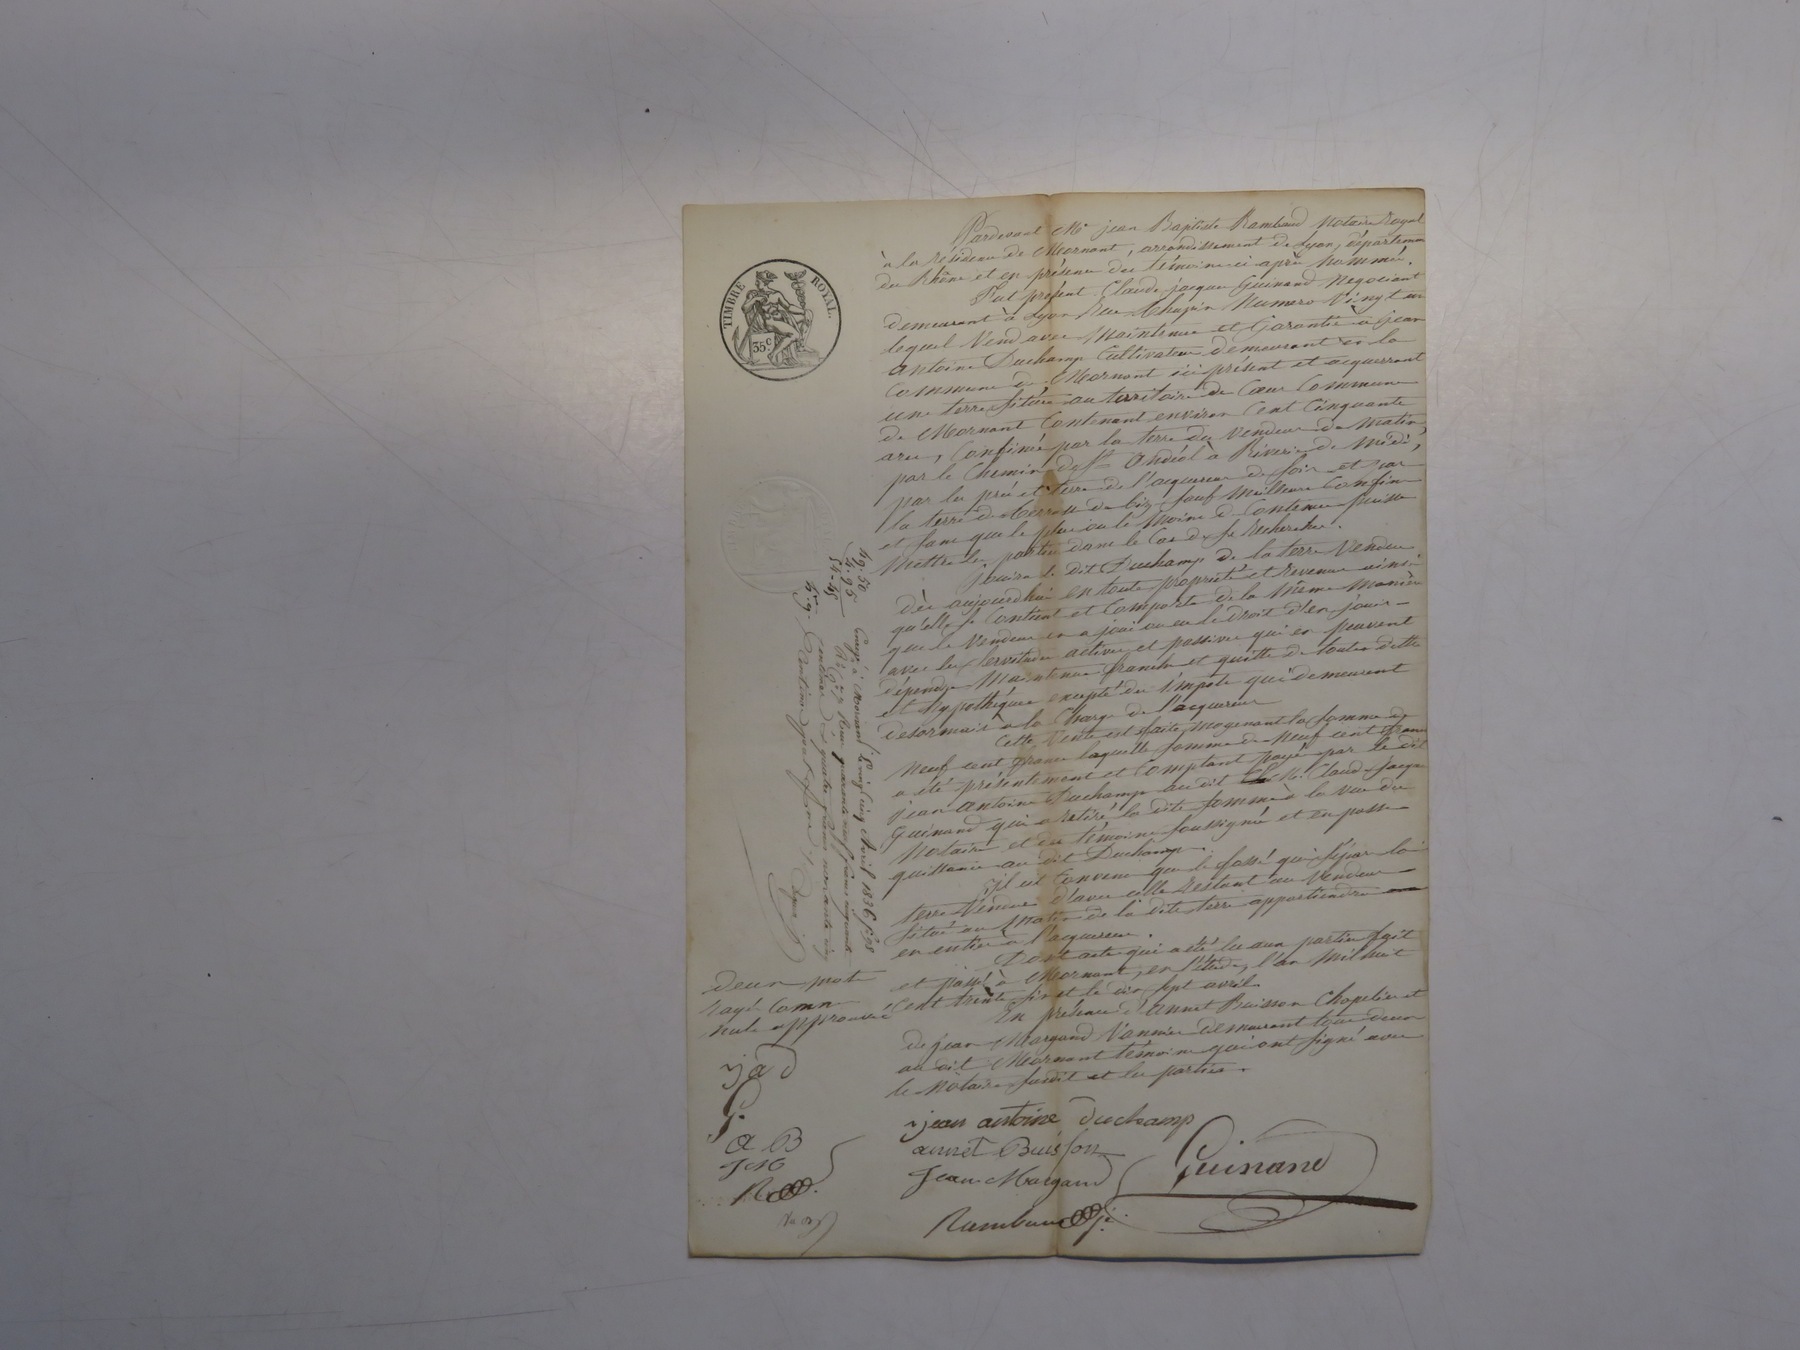 TIMBRE ROYAL.
35 c
Pardevant Me jean Baptiste Rambaud Notaire Royal
à la résidence de Mornant, arrondissement de Lyon, département
du Rhône et en présence des témoins ci après nommés.
Fut présent Claude jacques Guinand Negociant
demeurant à Lyon Rue Numero Vingt un
lequel Vend avec Maintenue et Garantie à jean
Antoine Duchamp Cultivateur demeurant en la
Commune de Mornant ici présent et acquerrant
une terre située au territoire de Commune
de Mornant Contenant environ Cent Cinquante
ares, Confinée par la terre du Vendeur de matin,
par le Chemin de St Andéol à Riverie de Midi,
par les prés et terre de l'acquereur de soir et par
la terre de de bize, sauf Meilleurs Confins
et sans que le plus ou le Moins de Contenue puisse
Mettre les parties dans le Cas de se Rechercher.
jouira le dit Duchamp de la terre Vendue
dès aujourdhui en toute propriété et Revenus ainsi
qu'elle se Contient et Comporte de la Même Manière
que le Vendeur en a joui ou eu le droit d'en jouir
avec les servitudes actives et passives qui en peuvent
dépendre Maintenue franche et quitte de toutes dettes
et hypothèques excepté des impots qui demeurent
désormais à la Charge de l'acquereur
Cette Vente est faite moyenant la somme de
Neuf cent francs laquelle somme de Neuf cent francs
a été présentement et Comptant payée par le dit
jean Antoine Duchamp au dit Claude jacques
Guinand qui a retiré la dite somme à la vue du
Notaire et des témoins soussignés et en passe
quittance au dit Duchamp.
il est Convenu que le fossé qui sépare la
terre Vendue d'avec celle Restant au Vendeur
situé au Matin de la dite terre appartiendra
en entier à l'acquereur.
Dont acte qui a été lu aux parties fait
et passé à Mornant, en l'étude, l'an Mil huit
Cent trente six et le vin sept avril.
En présence d'annet Buisson Chapelier et
de jean Margand Vannier demeurant tous deux
au dit Mornant témoins qui ont signé avec
le Notaire susdit et les parties.
jean antoine duchamp
annet Buisson
Jean Margand
Guinand
Rambaud
49.50
4.95
54.45
Avril 1836
quarante neuf francs cinquante
quatre francs nonante cinq
deux mots
rayé comme
nuls approuvé
j a d
G
a B
J M
R